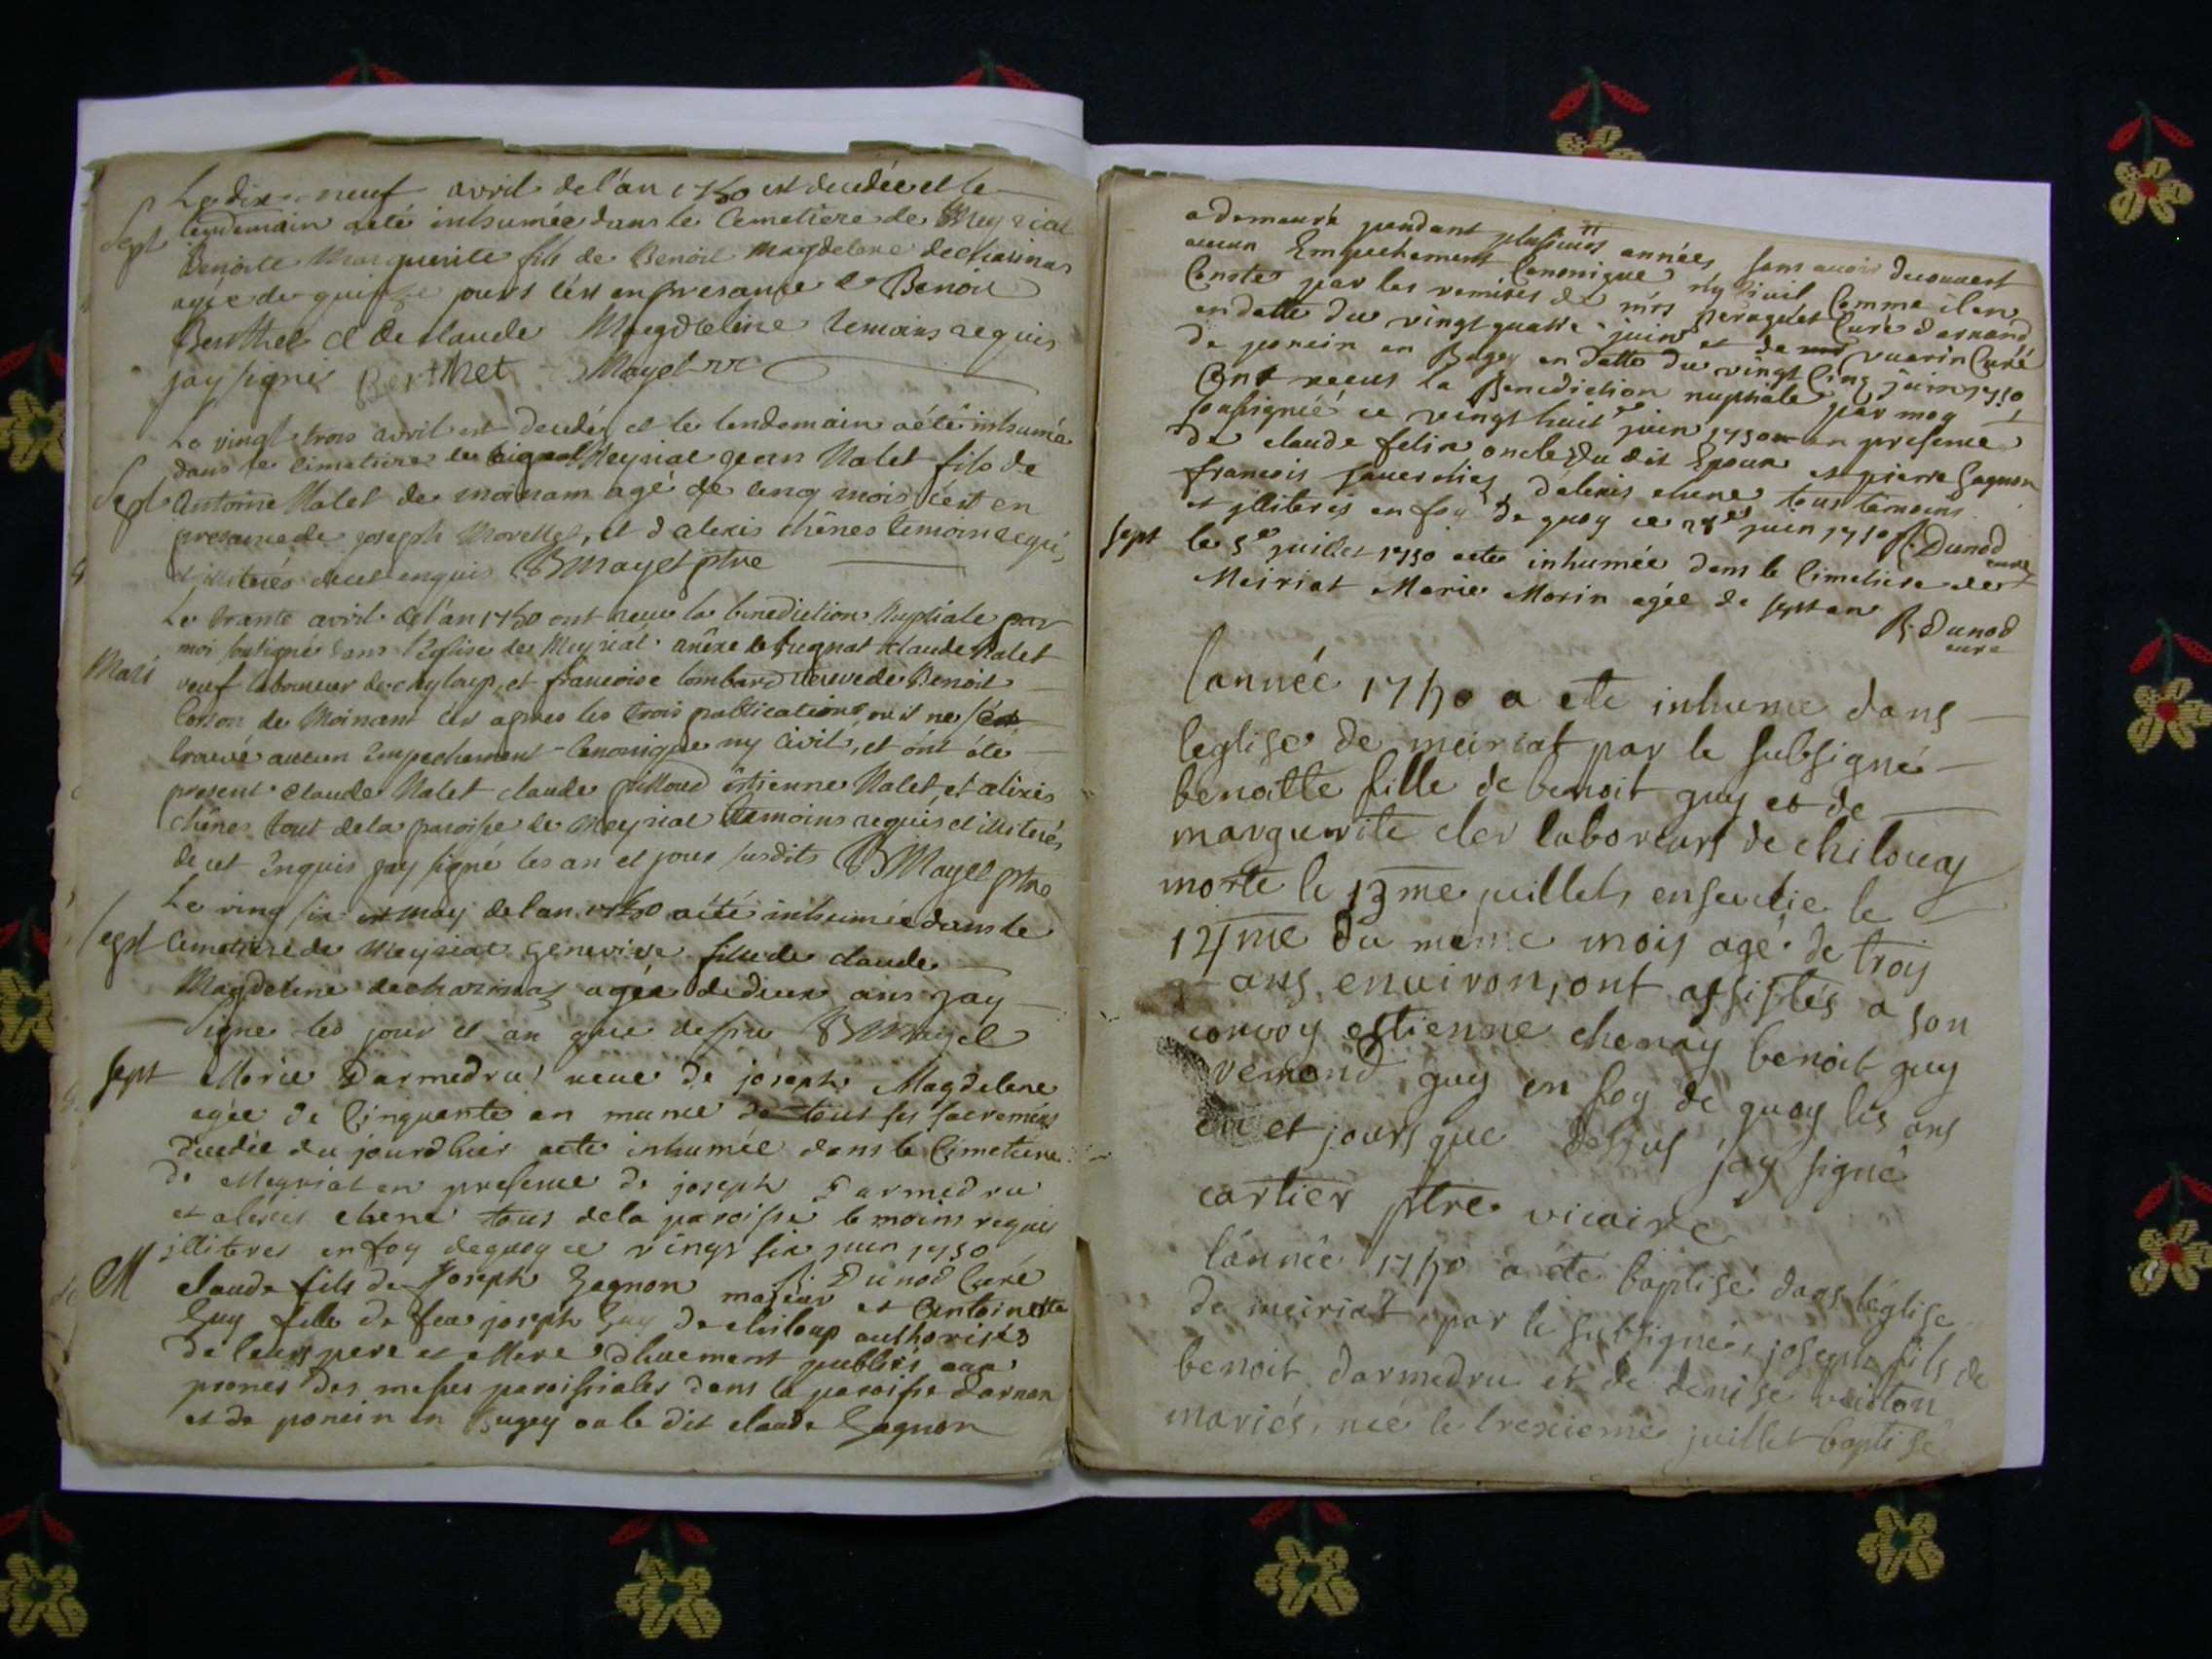 Le dix neuf avril de l'an 1750 est decedée et le
Sept lendemain a eté inhumée dans le Cemetiere de Meyriat
Benoite Marguerite fils de Benoit Magdelene de charinas
agée de quinze jours c'est en presance de Benoit
Berthet et de Claude Magdeleine temoins requis
jay signé Berthet Mayet
Le vingt trois avril est decedé et le lendemain a été inhumé
dans le cimetiere de Meyriat jean Nalet fils de
Sept Antoine Nalet de moinam agé de cinq mois c'est en
presance de joseph Morellet, et d alexis chênes temoin requis
et illiterés de cet enquis B Mayet ptre
Le trante avril de l'an 1750 ont reçu la benediction Nuptiale par
moi soutigné dans l'Eglise de Meyriat anêxe de claude Nalet
Mari veuf laboureur de chyloup, et francoise lombard veuve de Benoit
de Moinant c'es apres les trois publications, ou il ne s'est
trouvé aucun Empechement Canonique ny Civil, et ont été
present Claude Nalet claude pilloud êstienne Nalet, et alixis
chênes tout de la paroisse de Meyriat temoins requis et illiterés
de cet Enquis jay signé les an et jour susdits B Mayet ptre
Le ving six may de l an 1750 a été inhumée dans le
Sept Cemetiere de Meyriat genevieve fille de claude
Magdeleine de charinas agée de deux ans jay
signé les jour et an que dessu B Mayet
Sept Marie Darmedru veue de joseph Magdelene
agée de Cinquante an munie de tous ses sacremens
decedée du jourdhuier a eté inhumée dans le Cimetiere
de Meyriat en presence de joseph Darmedru
et alexis chene tous de la paroisse temoins requis
jlliteres en foy de quoy ce vingt six juin 1750
R. Dunod Curé
M claude fils de Joseph Gagnon majeur et Antoinette
Guy fille de feu joseph Guy de chiloup authorisés
de leurs pere et Mere dhuement publiés aux
prones des messes paroissiales dans la paroisse darnan
et de poncin en Bugey ou le dit claude Gagnon
a demeuré pendant plusieurs années, sans avoir decouvert
aucun Empechement Canonique ny Civil Comme il en
Conste par les remises de mrs Curé darnand
en datte du vingt quatre juin et de vuarin Curé
de poncin en Bugey en datte du vingt Cinq juin 1750
Ont reçus la Benediction nuptiale par moy
soussigné ce vingt huit juin 1750 en presence
de claude felix oncle du dit Epoux et pierre Gagnon
francois, d'alexis chene tous temoins
et jlliterés en foy de quoy ce 28e juin 1750 R. Dunod
curé
Sept le 5e juillet 1750 a ete inhumée dans le Cimetiere de
Meiriat Marie Morin agée de sept an
R. Dunod
curé
L'année 1750 a ete inhume dans
l'eglise de meiriat par le subsigné
benoitte fille de benoit guy et de
marguerite cler laboreurs de chilouap
morte le 13me juillet, ensevelie le
14me du meme mois agé de trois
ans environ, ont assistés a son
convoy estienne chenay benoit guy
guy en foy de quoy les ans
et jours que dessus j'ay signé
cartier ptre vicaire
L'année 1750 a été baptisé dans l'église
de meiriat, par le subsigné, joseph fils de
benoit darmedru et de denise
mariés, neé le trexieme juillet baptisé